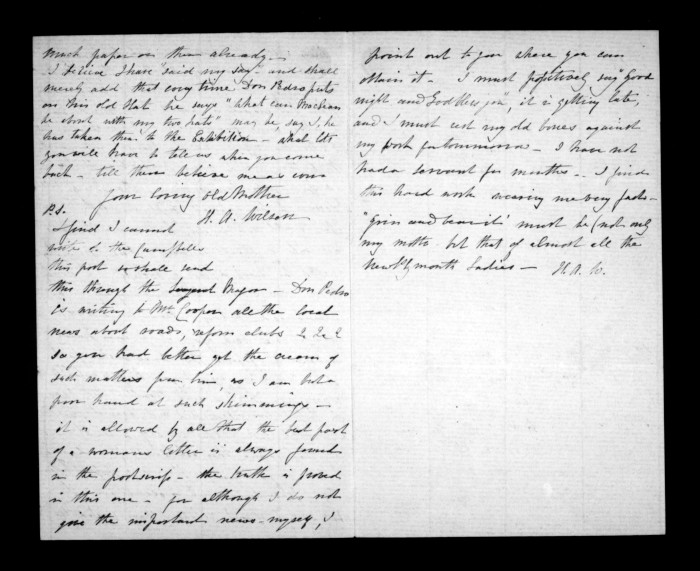 much paper on them already —
I believe I have "said my say" and shall
merely add that every time Don Pedro puts
on his old Hat he says "What can Maclean
be about with my two hats" may be, say I, he
has taken them to the Exhibition — what lots
you will have to tell us when you come
back — till then believe me as ever
Your loving old Mother
H. A. Wilson
P.S.
I find I cannot
write to the Campbells
this post so shall send
this through the Major — Don Pedro
is writing to Mr Cooper all the local
news about roads, reform clubs &c &c
so you had better get the cream of
such matters from him, as I am but a
poor hand at such skimmings —
it is allowed by all that the best part
of a womans letter is always found
in the postscrip — the truth is proved
in this one — for although I do not
give the important news myself, I
point out to you where you can
obtain it — I must positively say "Good
night and God bless you", it is getting late,
and I must rest my old bones against
my work for tomorrow — I have not
had a servant for months — I find
this hard work wearing me very fast —
"grin and bear it" must be (not only
my motto but that of almost all the
New Plymouth Ladies — H. A. W.